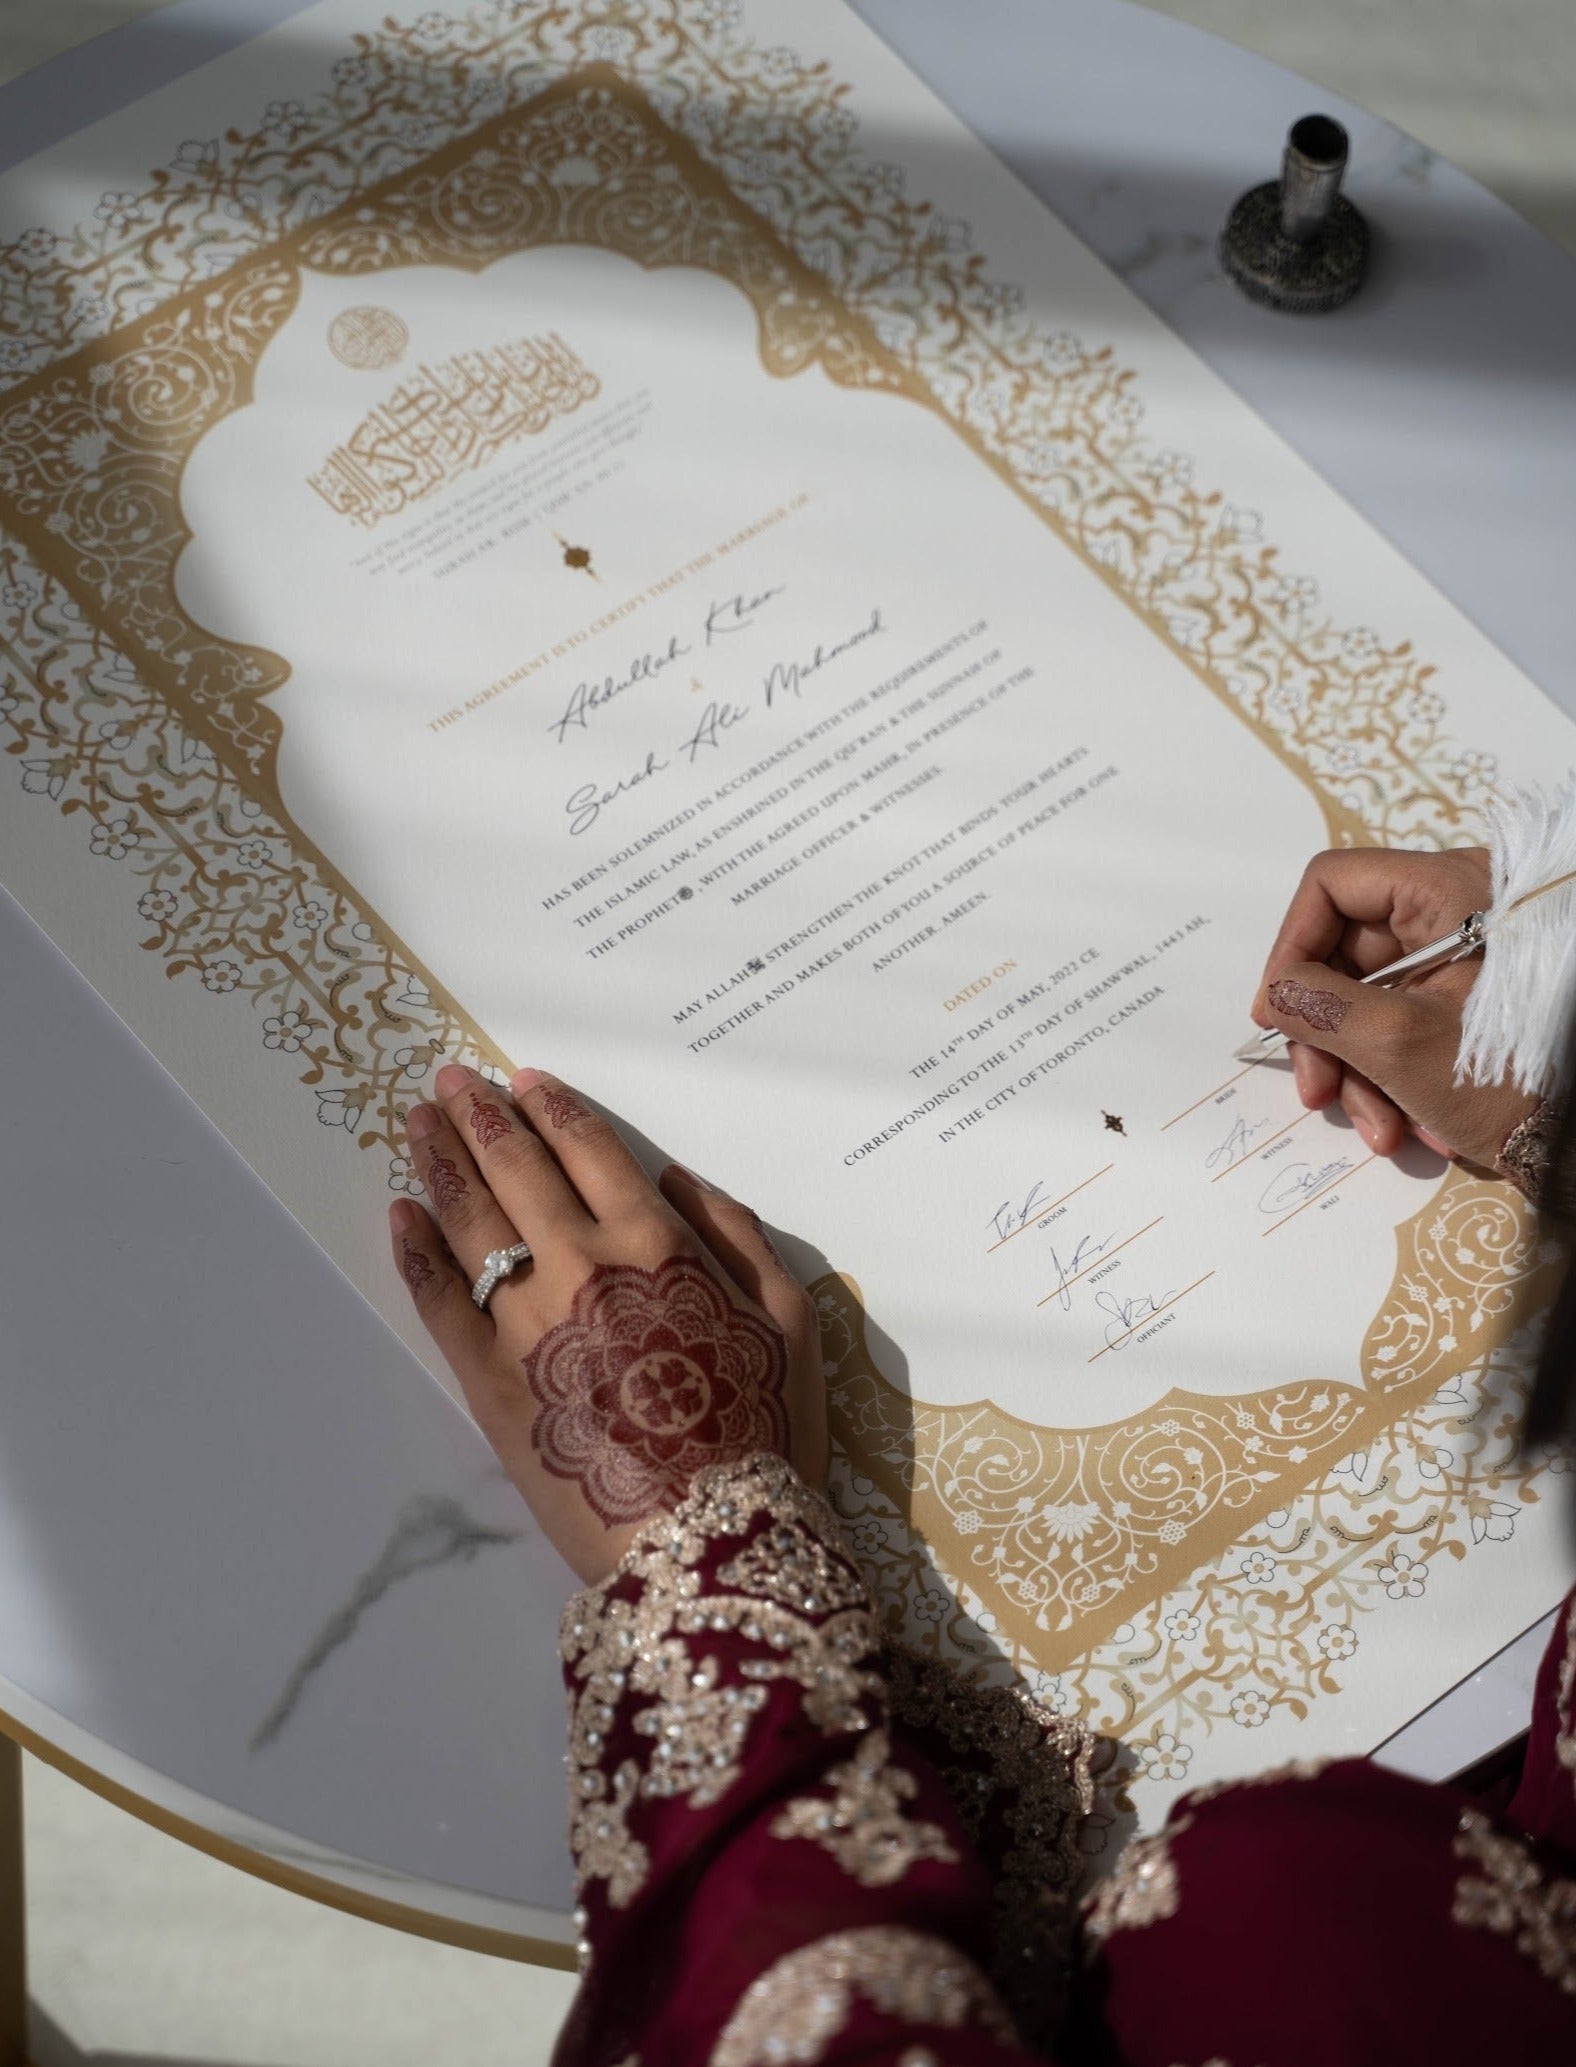 "And of His signs is that He created for you from yourselves mates that you
may find tranquility in them; and He placed between you affection and
mercy. Indeed in that are signs for a people who give thought."
SURAH AR-RUM | QUR'AN, 30:21
THIS AGREEMENT IS TO CERTIFY THAT THE MARRIAGE OF
Abdullah Khan
&
Sarah Ali Mahmood
HAS BEEN SOLEMNIZED IN ACCORDANCE WITH THE REQUIREMENTS OF
THE ISLAMIC LAW, AS ENSHRINED IN THE QU'RAN & THE SUNNAH OF
THE PROPHET ﷺ, WITH THE AGREED UPON MAHR, IN PRESENCE OF THE
MARRIAGE OFFICER & WITNESSES.
MAY ALLAH STRENGTHEN THE KNOT THAT BINDS YOUR HEARTS
TOGETHER AND MAKES BOTH OF YOU A SOURCE OF PEACE FOR ONE
ANOTHER. AMEEN.
DATED ON
THE 14TH DAY OF MAY, 2022 CE
CORRESPONDING TO THE 13TH DAY OF SHAWWAL, 1443 AH,
IN THE CITY OF TORONTO, CANADA
GROOM
BRIDE
WITNESS
WITNESS
OFFICIANT
WALI